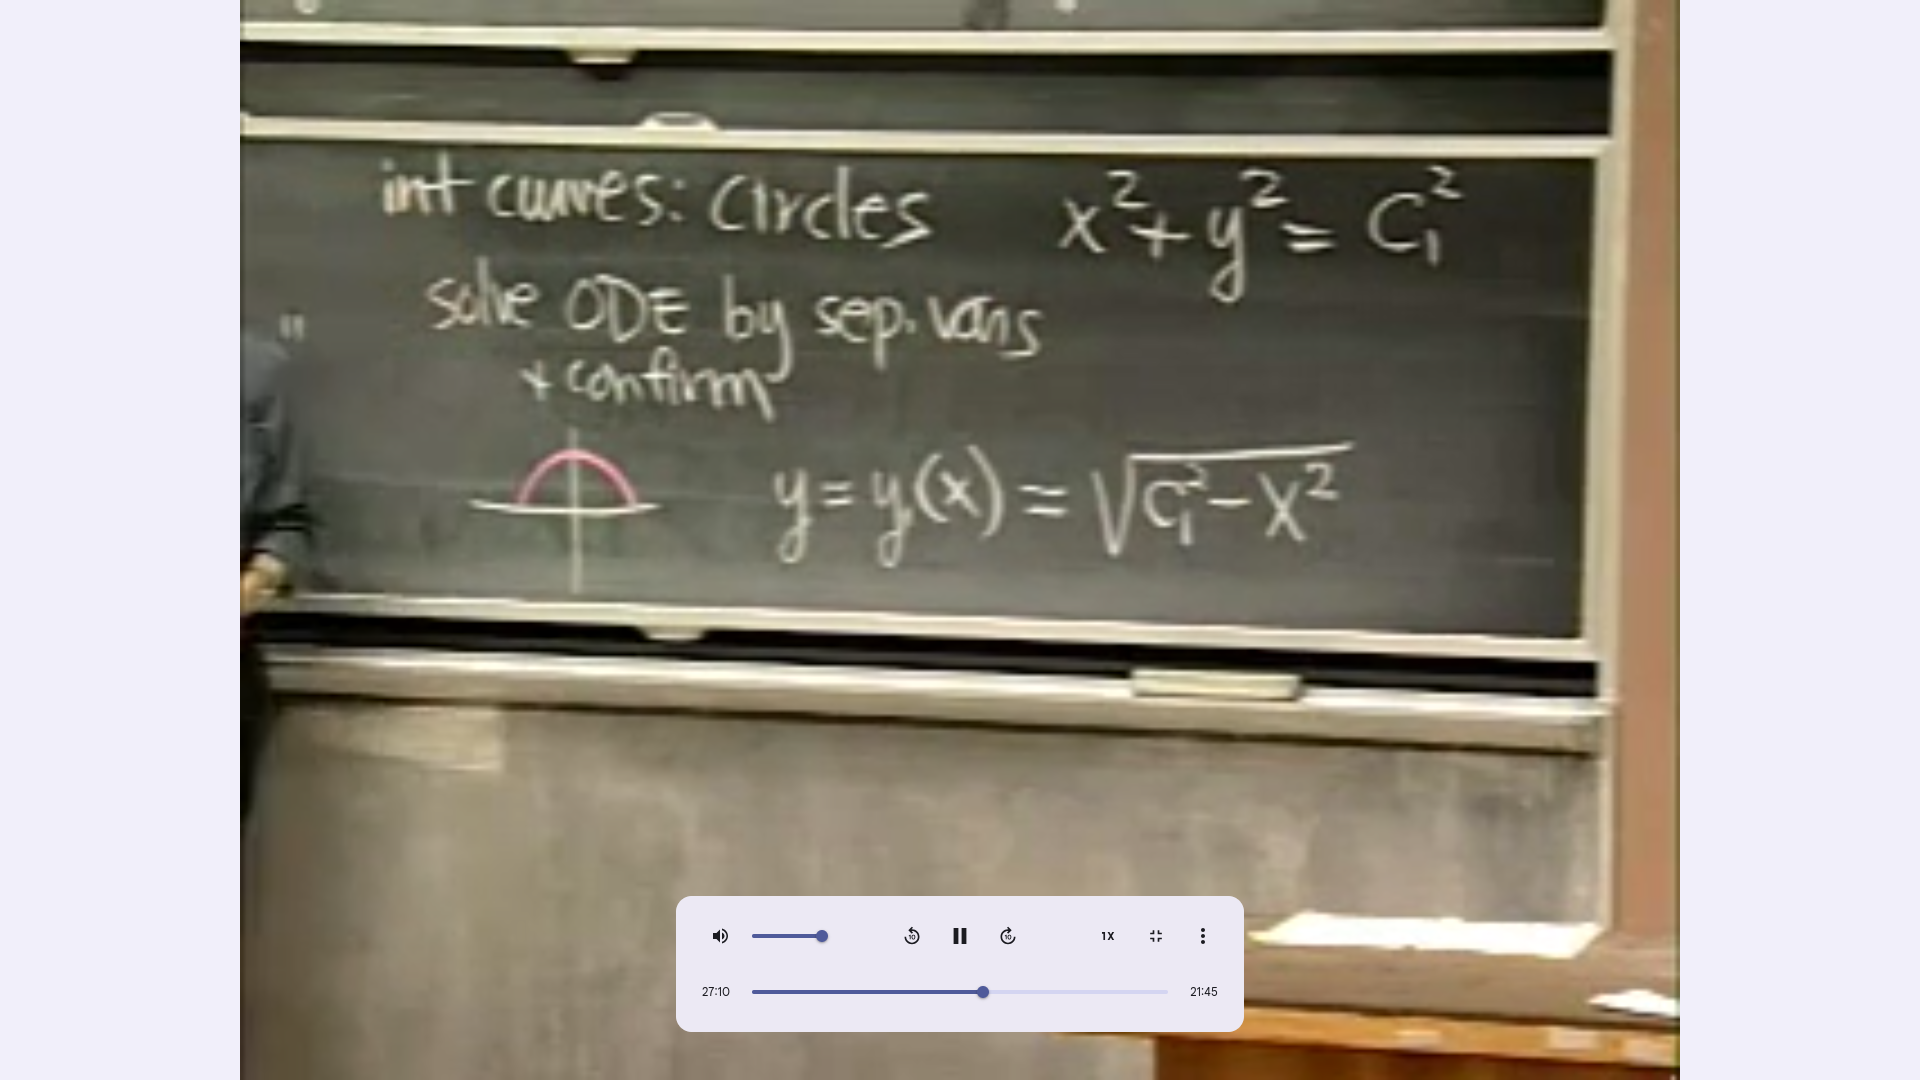 int curves: Circles x² + y² = C₁²
solve ODE by sep. vars
+ confirm
y = y₁(x) = √(C₁² − x²)
1X
27:10
21:45